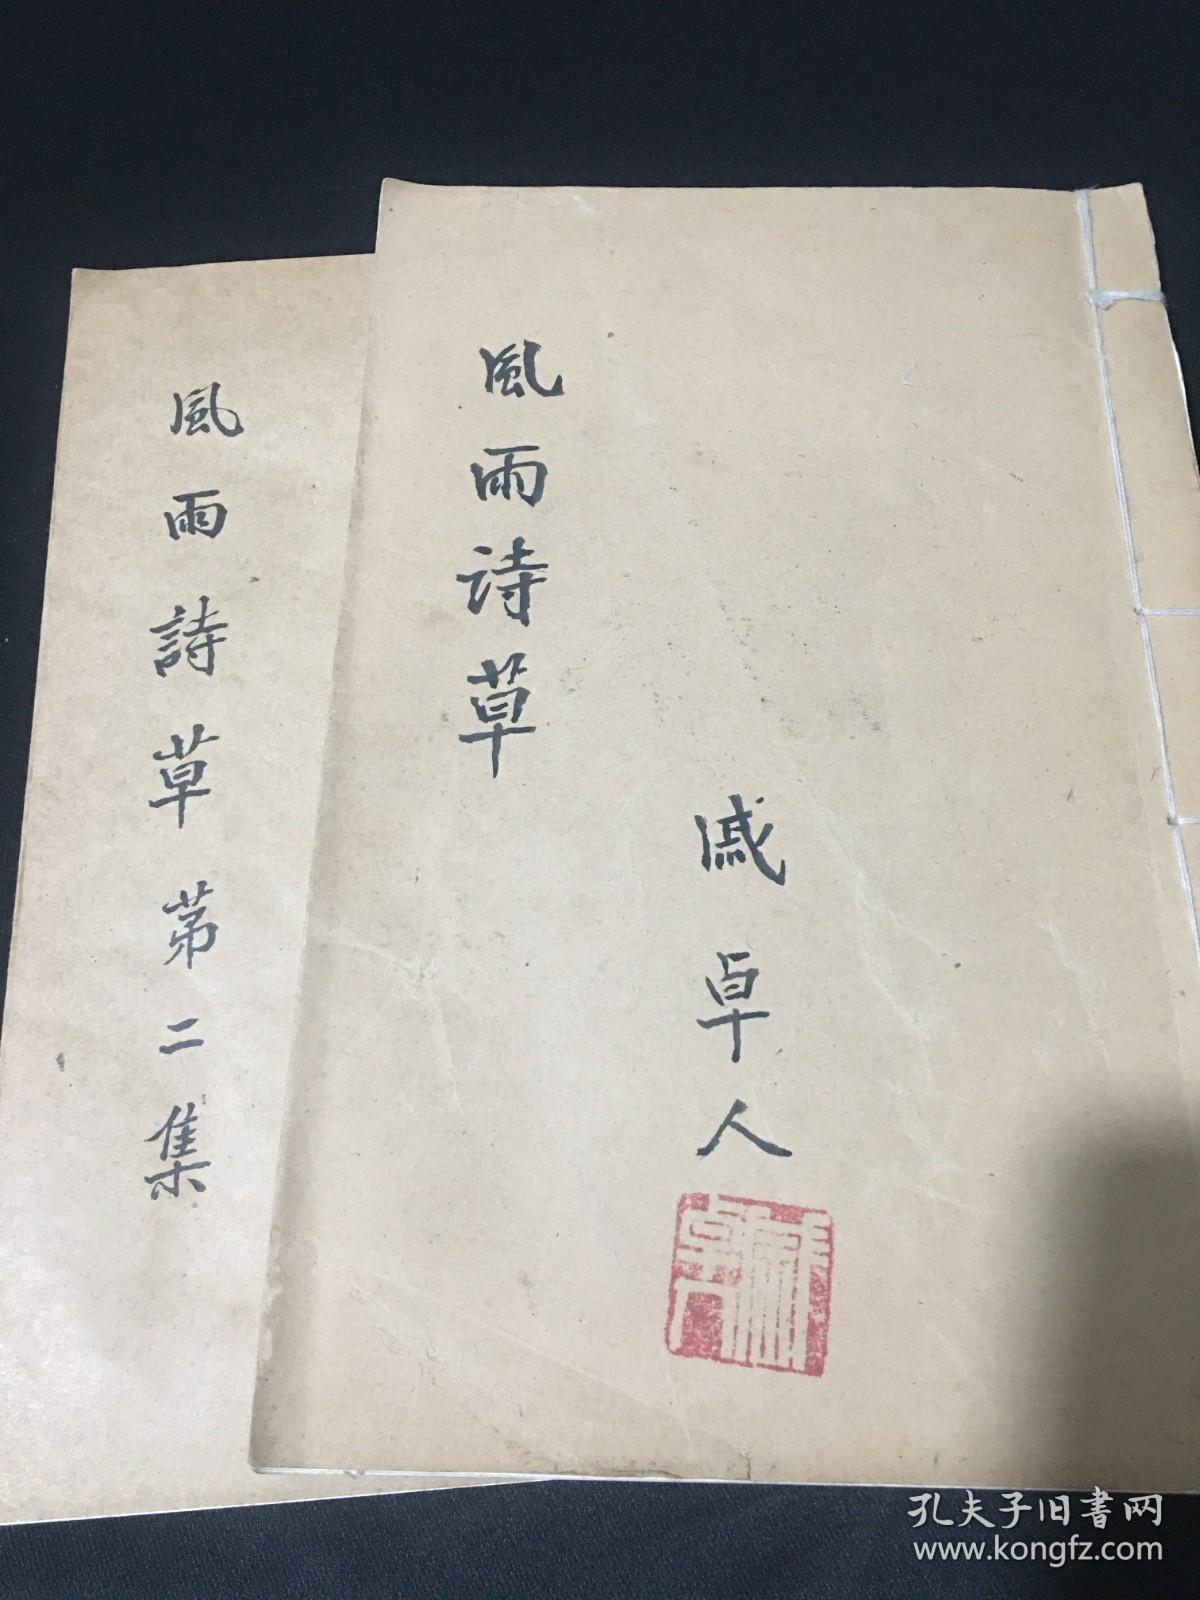 風雨诗草
戚卓人
風雨詩草第二集
孔夫子旧书网
www.kongfz.com